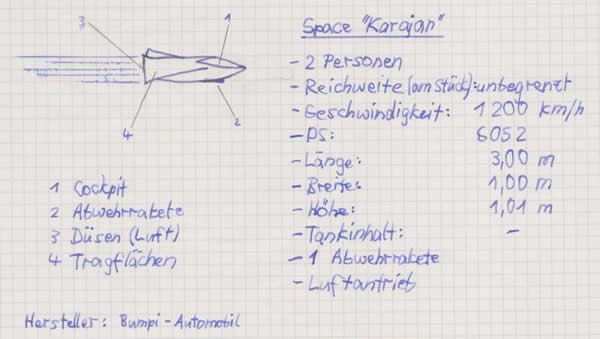 Space "Karajan"
3
1
4
2
- 2 Personen
- Reichweite (am Stück): unbegrenzt
- Geschwindigkeit: 1200 km/h
- PS: 6052
- Länge: 3,00 m
- Breite: 1,00 m
- Höhe: 1,01 m
- Tankinhalt: -
- 1 Abwehrrakete
- Luftantrieb
1 Cockpit
2 Abwehrrakete
3 Düsen (Luft)
4 Tragflächen
Hersteller: Bumpi-Automobil